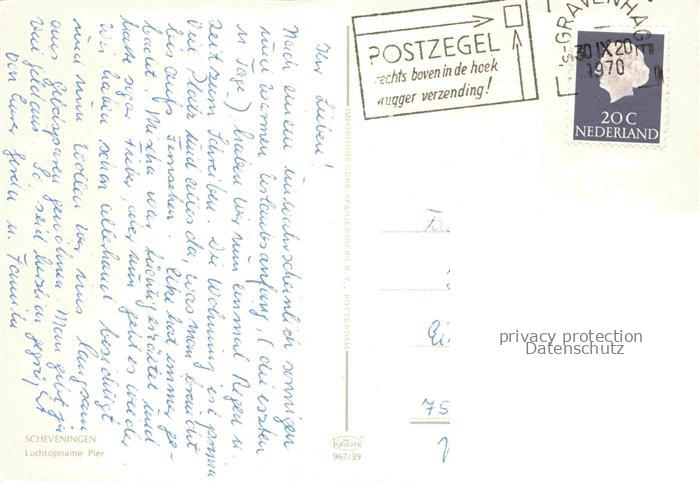 Ihr Lieben!
Nach einem unwahrscheinlich sonnigen
und warmen Urlaubsanfang, (die ersten
Tage), haben wir nun einmal Regen u.
Zeit zum Schreiben. Die Wohnung ist prima
viel Platz und alles da, was man braucht
bis aufs Fernsehen. Elke hat immer ge-
badet. Mischa war tüchtig erkältet und
hatte sogar Fieber, aber nun geht es wieder.
Wir haben schon allerhand besichtigt
und nun wollen wir uns langsam
ans Geldsparen gewöhnen. Man gibt ja
viel Geld aus. So seid herzlich gegrüßt
von Eurer u. Familie
SCHEVENINGEN
Luchtopname Pier
IMPORTHUIS GEBR. SPANJERSBERG N.V., ROTTERDAM
967/39
POSTZEGEL
rechts boven in de hoek
vlugger verzending!
's-GRAVENHAGE
30 IX 20
1970
20 C
NEDERLAND
75
privacy protection
Datenschutz